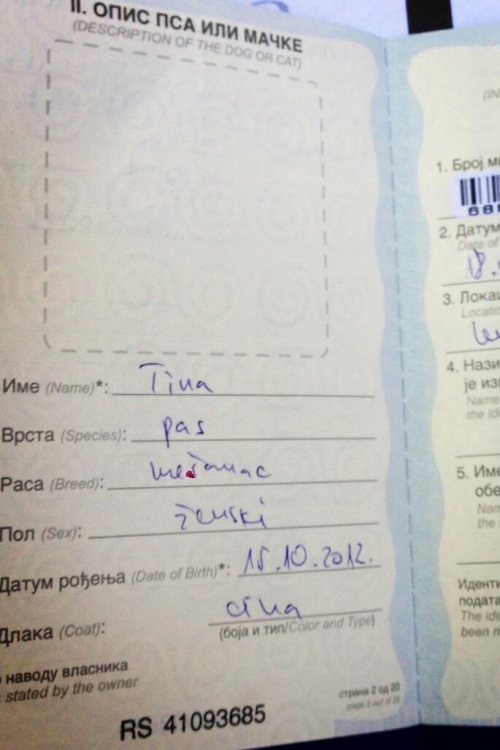 II. ОПИС ПСА ИЛИ МАЧКЕ
(DESCRIPTION OF THE DOG OR CAT)
Име (Name)*: Tina
Врста (Species): pas
Раса (Breed): mešanac
Пол (Sex): ženski
Датум рођења (Date of Birth)*: 15.10.2012.
Длака (Coat): crna
(боја и тип/Color and Type)
наводу власника
stated by the owner
страна 2 од 20
page 2 out of 20
RS 41093685
(IN
1. Број
2. Датум
Date of
18.
3. Лока
Locatio
4. Нази
је из
Name
the id
5. Име
обе
Nam
the
Иденти
подата
The ide
been m